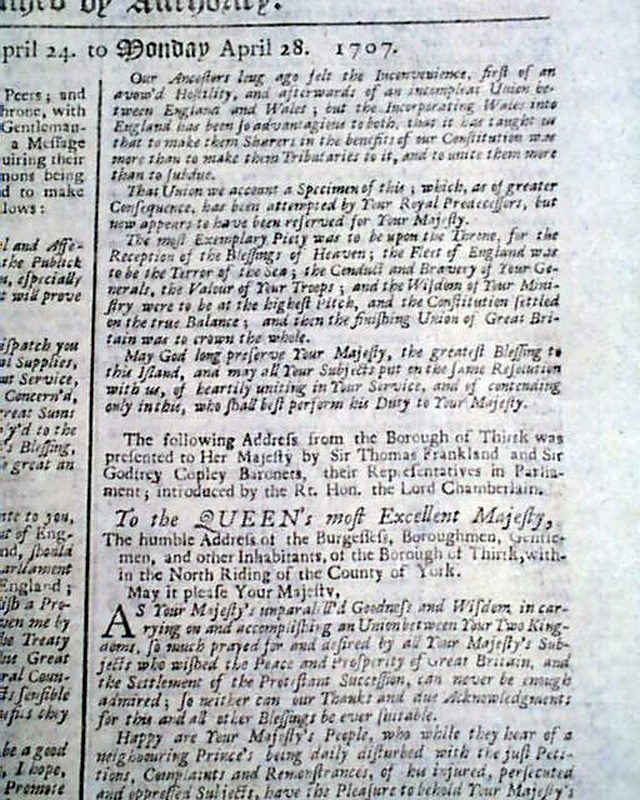 by Authority.
pril 24. to Monday April 28. 1707.
Peers; and
hrone, with
Gentleman-
a Message
uiring their
mons being
d to make
lows:
l and Affe-
the Publick
s, especially
t will prove
ispatch you
al Supplies,
Service,
Concern'd,
reat Sums
y'd to the
s Blessing,
great an
nte to you,
ut of Eng-
nd, should
arliament
England;
lish a Pro-
ven me by
he Treaty
he Great
ral Coun-
ts sensible
they
be a good
, I hope,
Promote
Our Ancestors long ago felt the Inconvenience, first of an
avow'd Hostility, and afterwards of an incompleat Union be-
tween England and Wales; but the Incorporating Wales into
England has been so advantagious to both, that it has taught us
that to make them Sharers in the benefits of our Constitution was
more than to make them Tributaries to it, and to unite them more
than to subdue.
That Union we account a Specimen of this; which, as of greater
Consequence, has been attempted by Your Royal Predecessors, but
now appears to have been reserved for Your Majesty.
The most Exemplary Piety was to be upon the Throne, for the
Reception of the Blessings of Heaven; the Fleet of England was
to be the Terror of the Sea; the Conduct and Bravery of Your Ge-
nerals, the Valour of Your Troops; and the Wisdom of Your Mini-
stry were to be at the highest Pitch, and the Constitution settled
on the true Balance; and then the finishing Union of Great Bri-
tain was to crown the whole.
May God long preserve Your Majesty, the greatest Blessing to
this Island, and may all Your Subjects put on the same Resolution
with us, of heartily uniting in Your Service, and of contending
only in this, who shall best perform his Duty to Your Majesty.
The following Address from the Borough of Thirsk was
presented to Her Majesty by Sir Thomas Frankland and Sir
Godfrey Copley Baronets, their Representatives in Parlia-
ment; introduced by the Rt. Hon. the Lord Chamberlain.
To the QUEEN's most Excellent Majesty,
The humble Address of the Burgesses, Boroughmen, Gentle-
men, and other Inhabitants, of the Borough of Thirsk, with-
in the North Riding of the County of York.
May it please Your Majesty,
AS Your Majesty's unparallell'd Goodness and Wisdom in car-
rying on and accomplishing an Union between Your Two King-
doms, so much prayed for and desired by all Your Majesty's Sub-
jects who wished the Peace and Prosperity of Great Britain, and
the Settlement of the Protestant Succession, can never be enough
admired; so neither can our Thanks and due Acknowledgments
for this and all other Blessings be ever suitable.
Happy are Your Majesty's People, who while they hear of a
neighbouring Prince's being daily disturbed with the just Peti-
tions, Complaints and Remonstrances, of his injured, persecuted
and oppressed Subjects, have the Pleasure to behold Your Majesty's